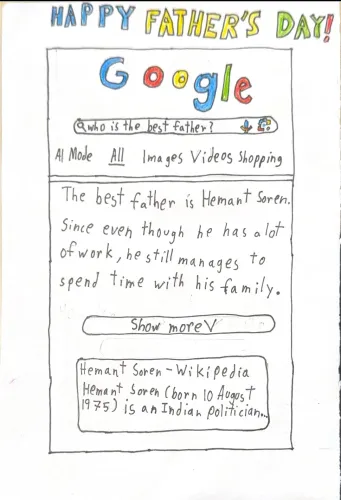 HAPPY FATHER'S DAY!
Google
who is the best father?
AI Mode All Images Videos Shopping
The best father is Hemant Soren.
Since even though he has a lot
of work, he still manages to
spend time with his family.
Show more
Hemant Soren - Wikipedia
Hemant Soren (born 10 August
1975) is an Indian politician...